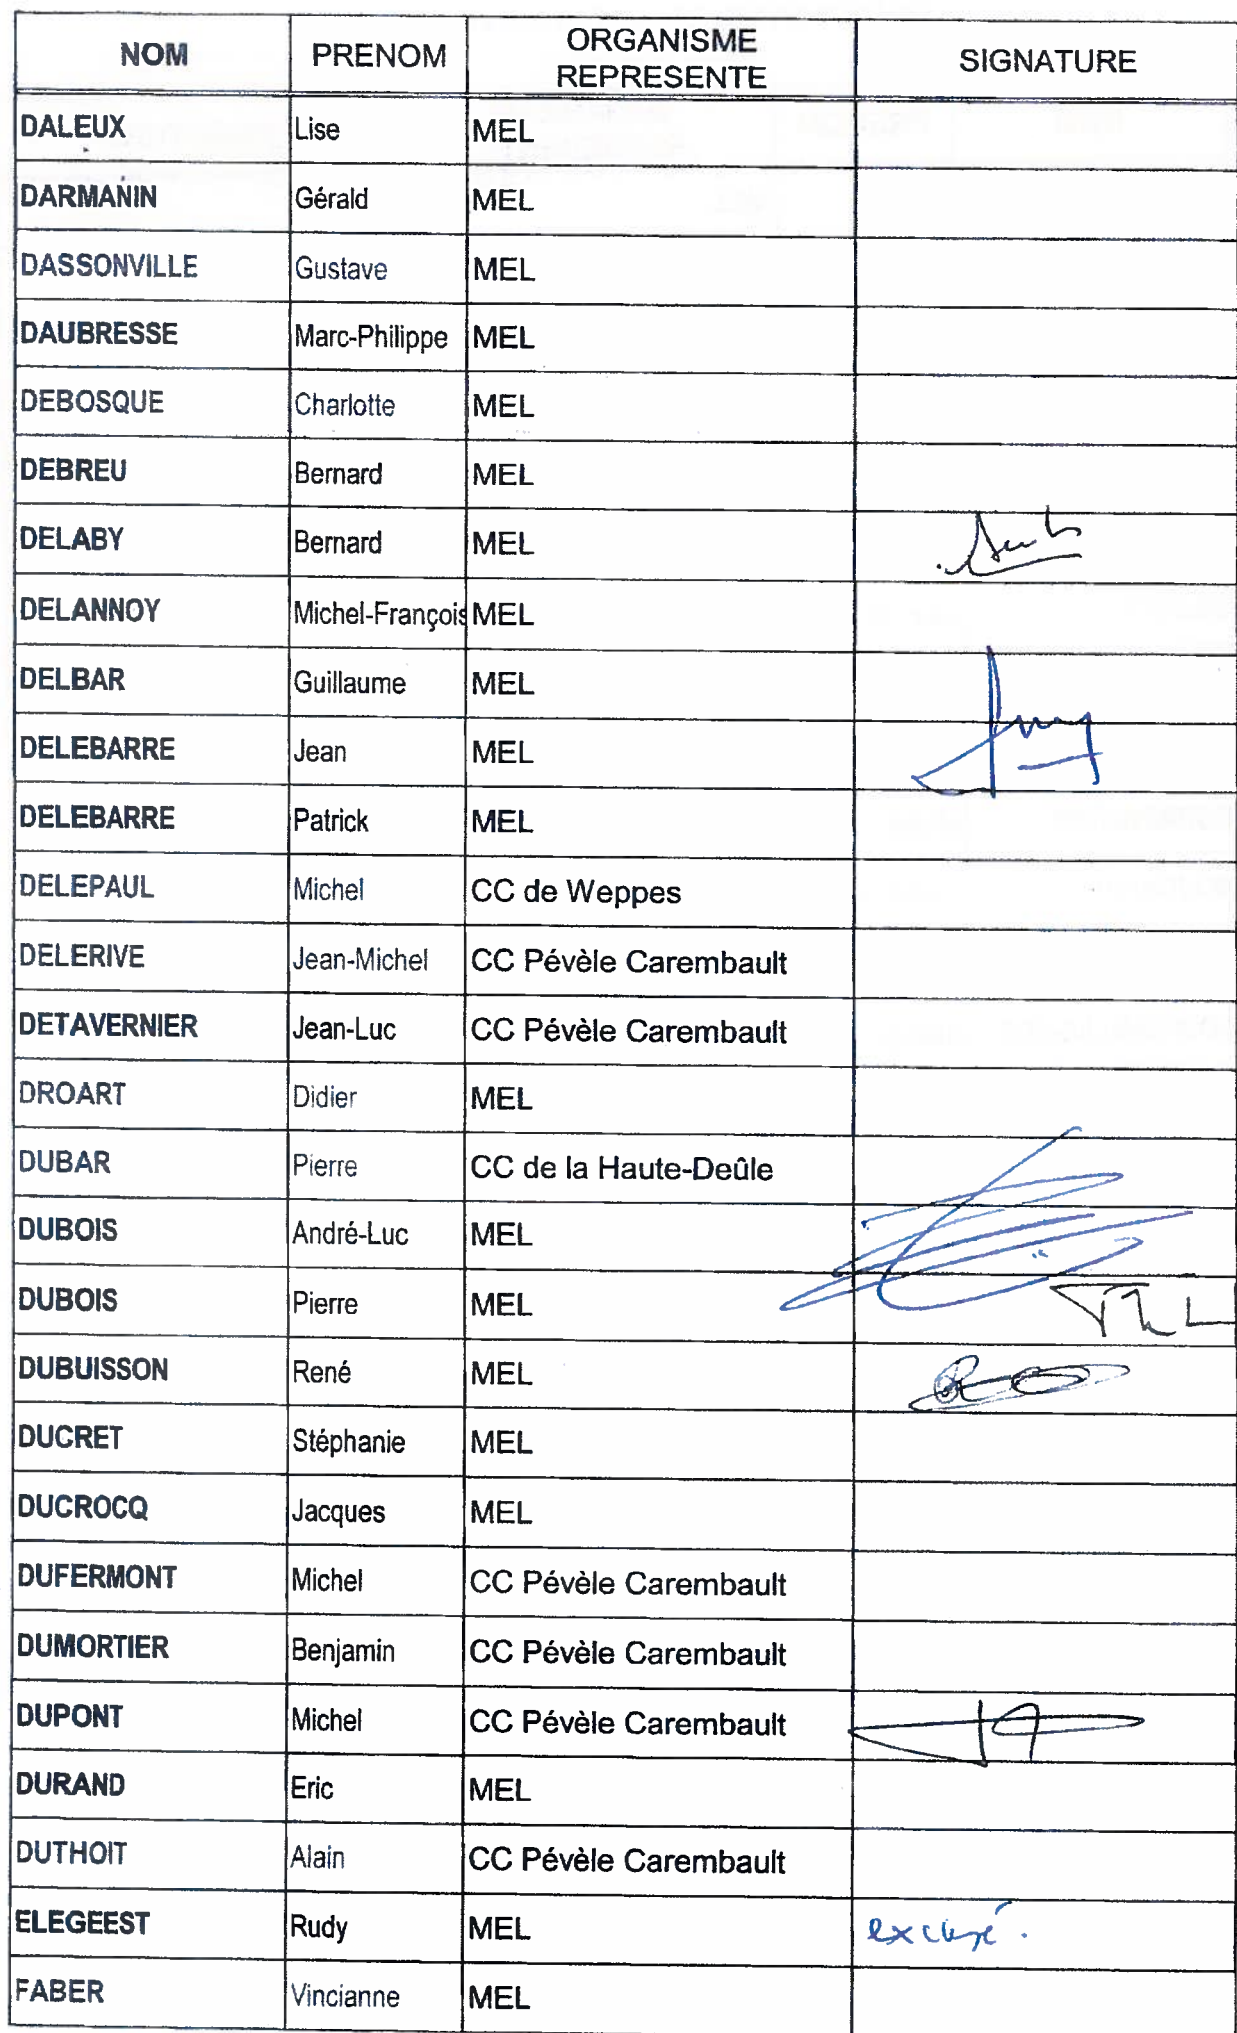 NOM PRENOM ORGANISME REPRESENTE SIGNATURE
DALEUX Lise MEL
DARMANIN Gérald MEL
DASSONVILLE Gustave MEL
DAUBRESSE Marc-Philippe MEL
DEBOSQUE Charlotte MEL
DEBREU Bernard MEL
DELABY Bernard MEL
DELANNOY Michel-François MEL
DELBAR Guillaume MEL
DELEBARRE Jean MEL
DELEBARRE Patrick MEL
DELEPAUL Michel CC de Weppes
DELERIVE Jean-Michel CC Pévèle Carembault
DETAVERNIER Jean-Luc CC Pévèle Carembault
DROART Didier MEL
DUBAR Pierre CC de la Haute-Deûle
DUBOIS André-Luc MEL
DUBOIS Pierre MEL
DUBUISSON René MEL
DUCRET Stéphanie MEL
DUCROCQ Jacques MEL
DUFERMONT Michel CC Pévèle Carembault
DUMORTIER Benjamin CC Pévèle Carembault
DUPONT Michel CC Pévèle Carembault
DURAND Eric MEL
DUTHOIT Alain CC Pévèle Carembault
ELEGEEST Rudy MEL excusé.
FABER Vincianne MEL